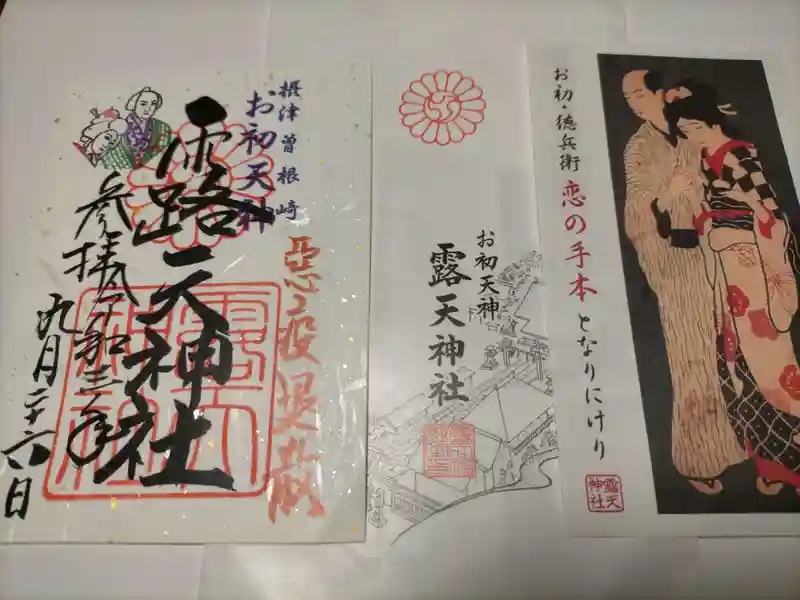 摂津曽根崎
お初天神
露天神社
悪疫退散
参拝令和三年
九月二十六日
お初天神
露天神社
お初・徳兵衛
恋の手本
となりにけり
露天
神社